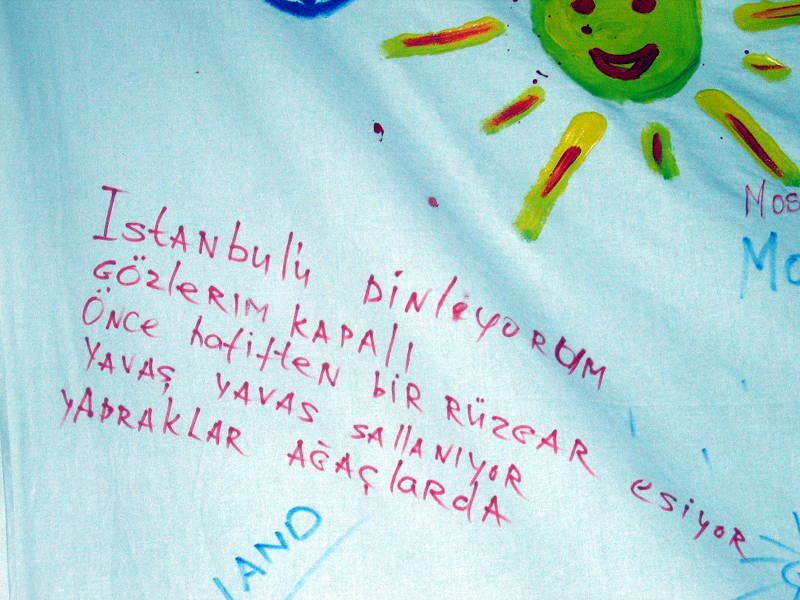 Istanbul'u Dinleyorum
Gözlerim kapalı
Önce hafiften bir rüzgar esiyor
Yavaş yavaş sallanıyor
yapraklar ağaçlarda
Mos
Mo
LAND